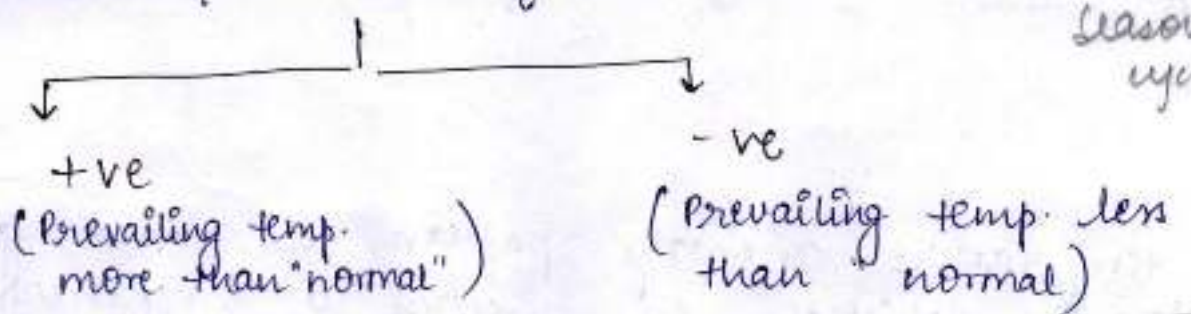 +ve
- ve
(Prevailing temp.
more than "normal")
(Prevailing temp. less
than normal)